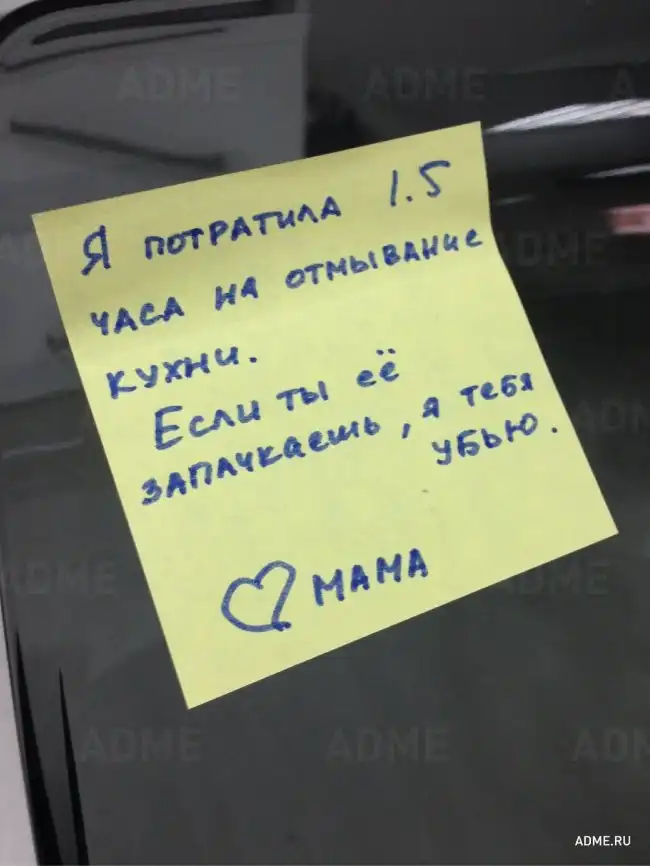 Я ПОТРАТИЛА 1.5
ЧАСА НА ОТМЫВАНИЕ
КУХНИ.
ЕСЛИ ТЫ ЕЁ
ЗАПАЧКАЕШЬ, Я ТЕБЯ
УБЬЮ.
♡ МАМА
ADME
ADME
ADME
ADME
ADME
ADME
ADME
ADME
ADME.RU